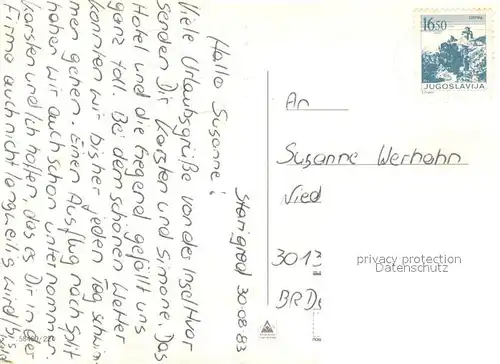 Starigrad 30.08.83
Hallo Susanne!
Viele Urlaubsgrüße von der Insel Hvar
senden Dir Karsten und Simone. Das
Hotel und die Gegend gefällt uns
ganz toll. Bei dem schönen Wetter
konnten wir bisher jeden Tag schwim
men gehen. Einen Ausflug nach Split
haben wir auch schon unternommen.
Karsten und ich hoffen, das es Dir in der
Firma auch nicht langweilig wird! Bis
16.50
JUGOSLAVIJA
An
Susanne Werhahn
Nied
3013
BRD
privacy protection
Datenschutz